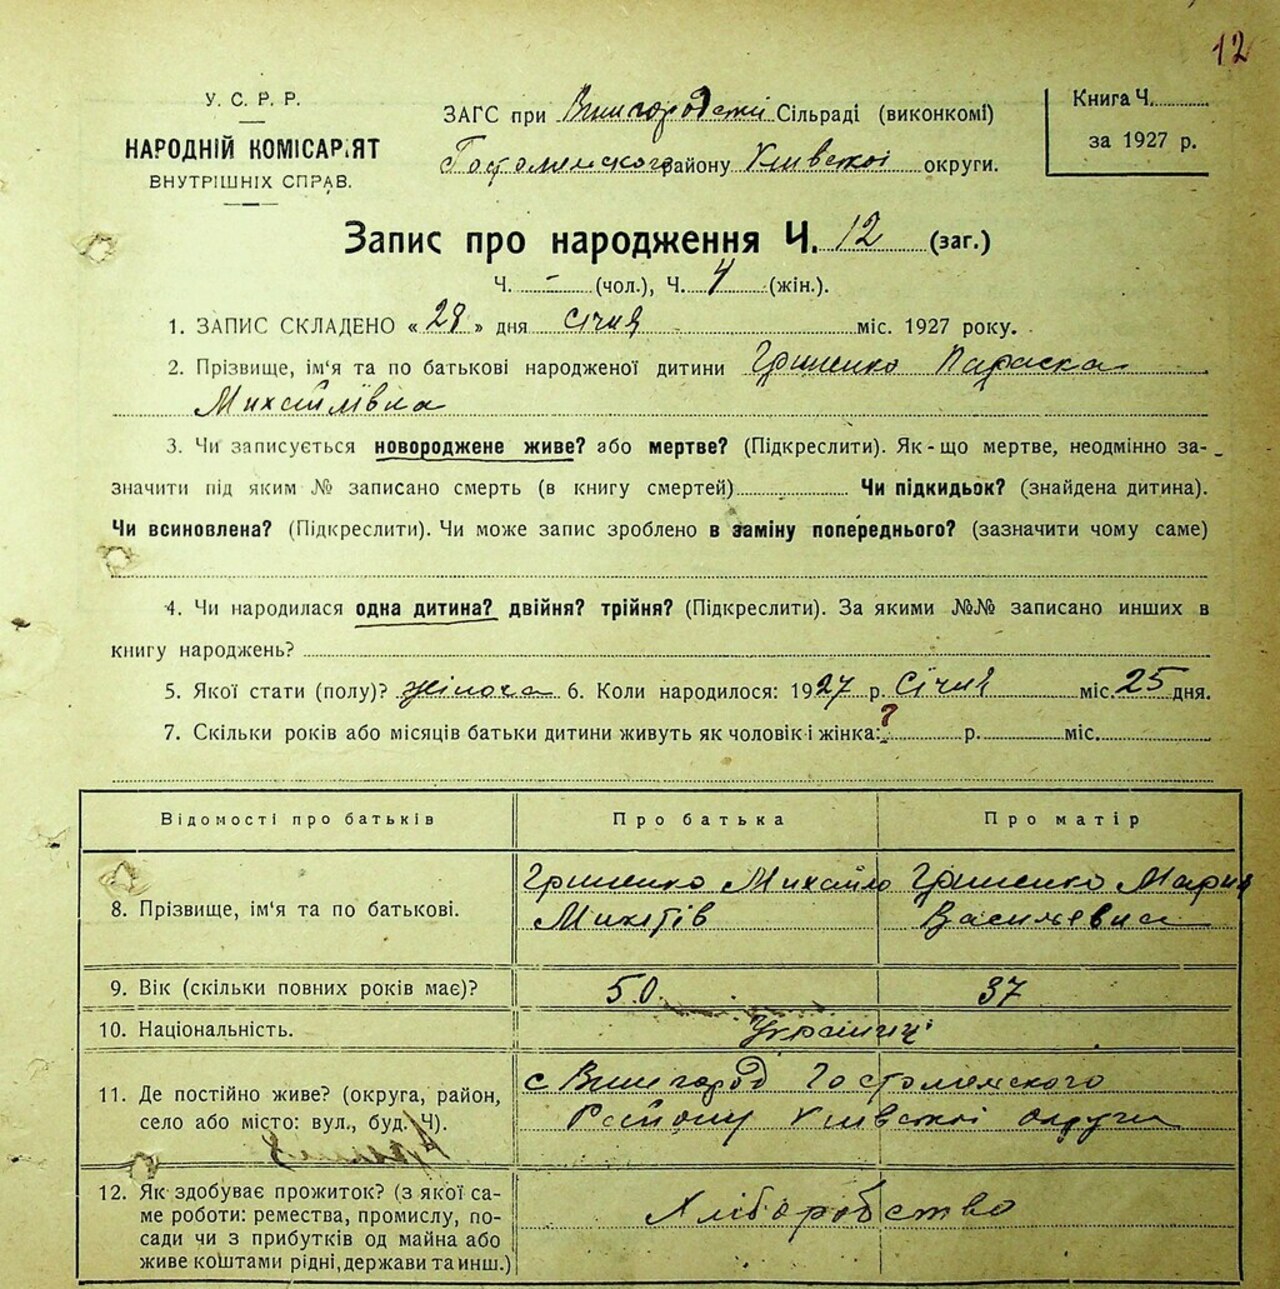 12
У. С. Р. Р.
НАРОДНІЙ КОМІСАР‚ЯТ
ВНУТРІШНІХ СПРАВ.
ЗАГС при Вишгородскій Сільраді (виконкомі)
Гостомлського району Київскої округи.
Книга Ч.
за 1927 р.
Запис про народження Ч. 12 (заг.)
Ч. - (чол.), Ч. 4 (жін.).
1. ЗАПИС СКЛАДЕНО «28» дня січня міс. 1927 року.
2. Прізвище, ім‘я та по батькові народженої дитини Гриненко Параска
Михайлівна
3. Чи записується новороджене живе? або мертве? (Підкреслити). Як-що мертве, неодмінно за-
значити під яким № записано смерть (в книгу смертей) Чи підкидьок? (знайдена дитина).
Чи всиновлена? (Підкреслити). Чи може запис зроблено в заміну попереднього? (зазначити чому саме)
4. Чи народилася одна дитина? двійня? трійня? (Підкреслити). За якими №№ записано инших в
книгу народжень?
5. Якої стати (полу)? жіноча 6. Коли народилося: 1927 р. Січня міс. 25 дня.
7. Скільки років або місяців батьки дитини живуть як чоловік і жінка: ? р. міс.
Відомості про батьків Про батька Про матір
8. Прізвище, ім‘я та по батькові. Гриненко Михайло Гриненко Мария
Микитів Васильевна
9. Вік (скільки повних років має)? 50. 37
10. Національність. Україниці
11. Де постійно живе? (округа, район, с Вишгород Гостомлського
село або місто: вул., буд. Ч). Району Київскої округи
12. Як здобуває прожиток? (з якої са-
ме роботи: ремества, промислу, по- Хліборобство
сади чи з прибутків од майна або
живе коштами рідні, держави та инш.)